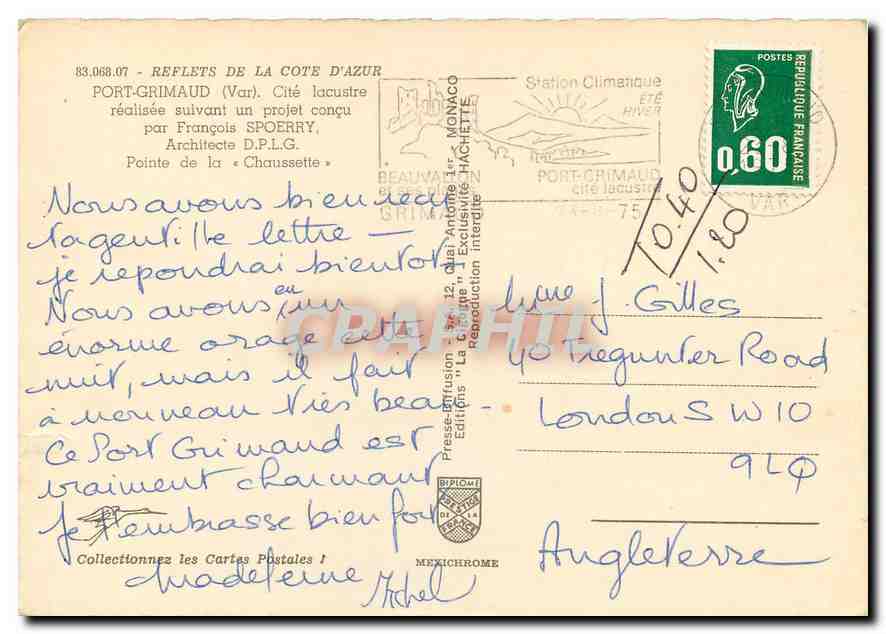 83.068.07 - REFLETS DE LA COTE D'AZUR
PORT-GRIMAUD (Var). Cité lacustre
réalisée suivant un projet conçu
par François SPOERRY,
Architecte D.P.L.G.
Pointe de la « Chaussette »
Station Climatique
ÉTÉ
HIVER
BEAUVALLON
et ses
GRIMAUD
PORT-GRIMAUD
cité lacustre
75
POSTES
REPUBLIQUE FRANÇAISE
0,60
VAR
T 0.40
1.20
Nous avons bien reçu
ta gentille lettre —
je repondrai bientot.
Nous avons eu un
énorme orage cette
nuit, mais il fait
à nouveau très beau -
Ce Port Grimaud est
vraiment charmant
Je t'embrasse bien fort
Madeleine Michel
Collectionnez les Cartes Postales !
Presse-Diffusion - 12, Quai Antoine 1er - MONACO
Editions "La Cigogne" - Exclusivité HACHETTE
Reproduction interdite
CPAPHIL
DIPLOME
PRESTIGE
DE LA
FRANCE
MEXICHROME
Mme J. Gilles
40 Tregunter Road
London SW10
9LQ
Angleterre